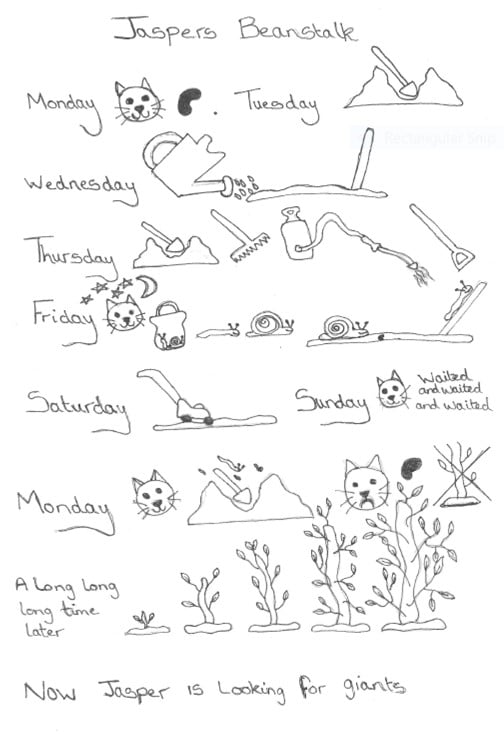 Jaspers Beanstalk
Monday
Tuesday
Rectangular Snip
Wednesday
Thursday
Friday
Saturday
Sunday
Waited
and waited
and waited
Monday
A Long long
long time
later
Now Jasper is Looking for giants